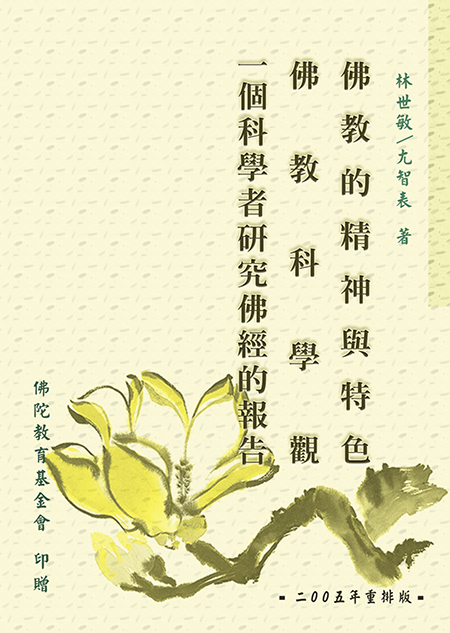 林世敏/尢智表 著
佛教的精神與特色
佛教科學觀
一個科學者研究佛經的報告
佛陀教育基金會 印贈
二00五年重排版